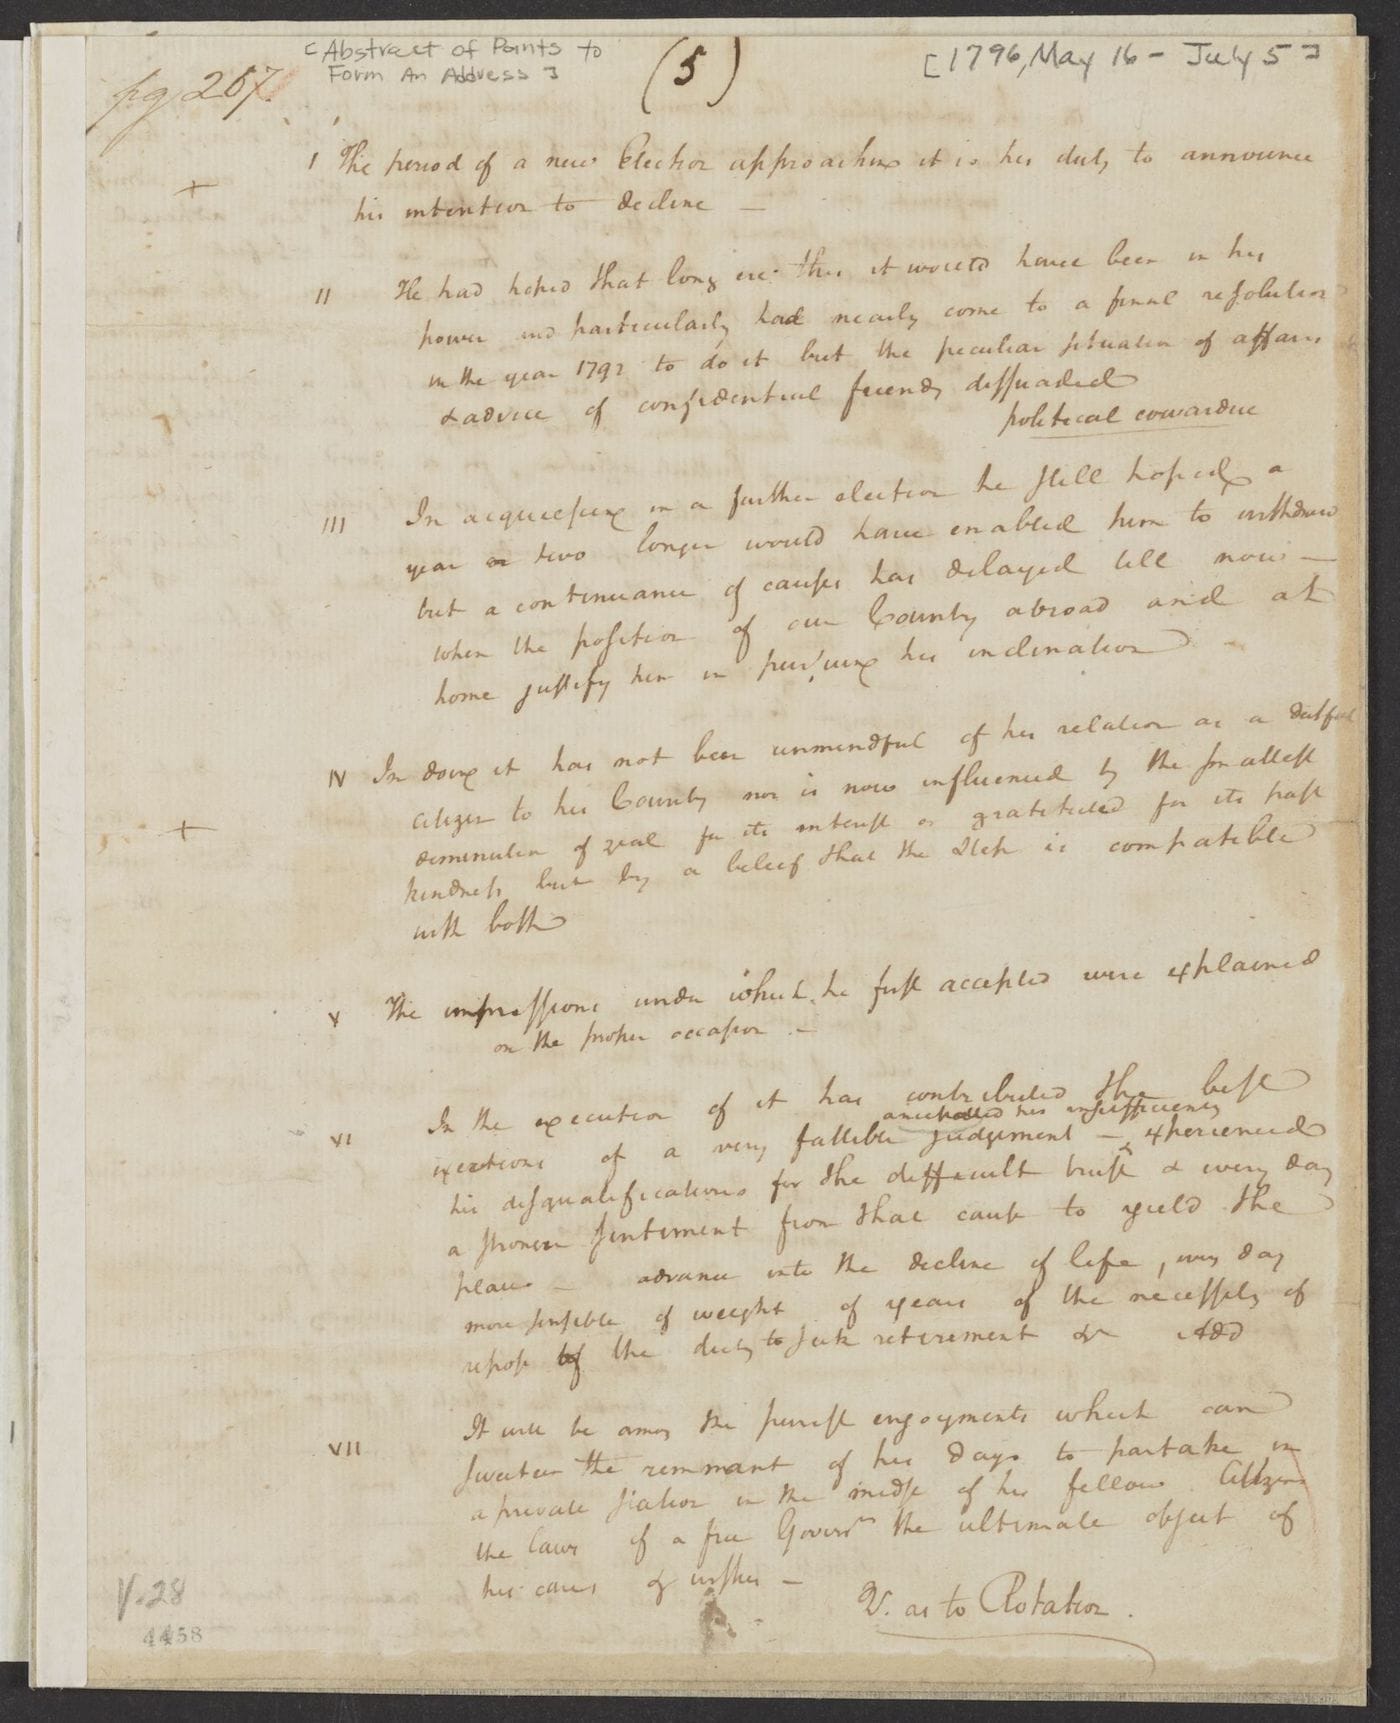 pg 257.
[Abstract of Points to
Form An Address]
(5)
[1796, May 16 - July 5]
I The period of a new Election approaching it is his duty to announce
his intention to decline —
II He had hoped that long ere this it would have been in his
power and particularly had nearly come to a final resolution
in the year 1792 to do it but the peculiar situation of affairs
& advice of confidential friends dissuaded
political cowardice
III In acquiescing in a further election he still hoped a
year or two longer would have enabled him to withdraw
but a continuance of causes has delayed till now —
when the position of our Country abroad and at
home justify him in pursuing his inclination
IV In doing it has not been unmindful of his relation as a dutiful
citizen to his Country nor is now influenced by the smallest
diminution of zeal for its interest or gratitude for its past
kindness but by a belief that the Step is compatible
with both
V The impressions under which he first accepted were explained
on the proper occasion —
VI In the execution of it has contributed the best
anticipated his insufficiency
exertions of a very fallible judgement — experienced
his disqualifications for the difficult trust & every day
a stronger sentiment from that cause to yield the
place — advance into the decline of life, every day
more sensible of weight of years of the necessity of
repose of the duty to seek retirement &c Add
VII It will be among the purest enjoyments which can
sweeten the remnant of his days to partake in
a private station in the midst of his fellow Citizens
the laws of a free Governmt the ultimate object of
his cares & wishes —
V. as to Rotation.
V. 28
4458